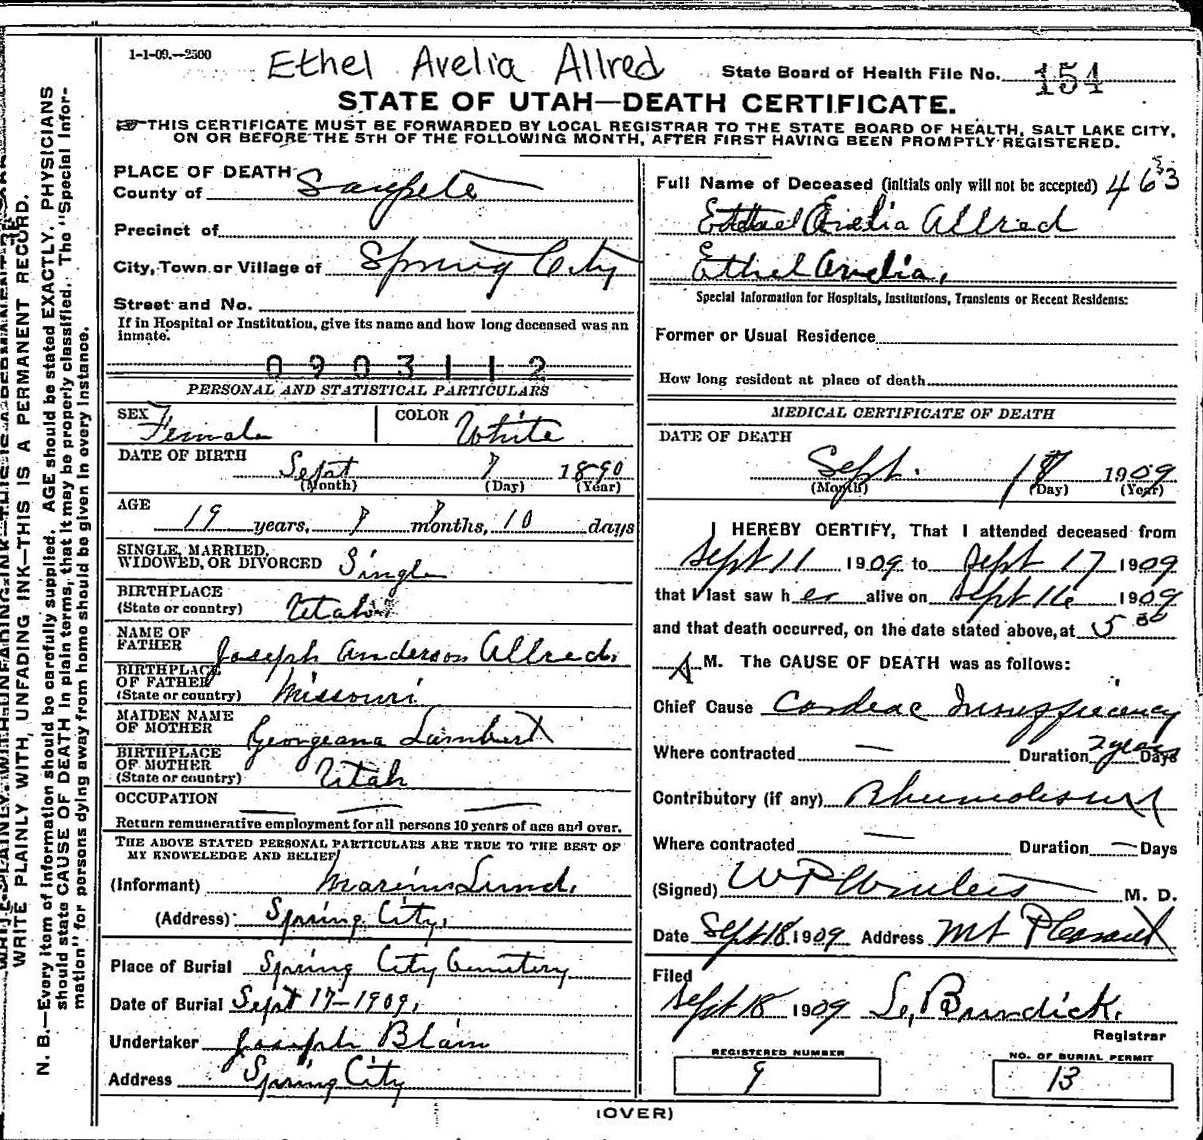 1-1-09.—2500
Ethel Avelia Allred
State Board of Health File No. 154
STATE OF UTAH—DEATH CERTIFICATE.
THIS CERTIFICATE MUST BE FORWARDED BY LOCAL REGISTRAR TO THE STATE BOARD OF HEALTH, SALT LAKE CITY,
ON OR BEFORE THE 5TH OF THE FOLLOWING MONTH, AFTER FIRST HAVING BEEN PROMPTLY REGISTERED.
WRITE PLAINLY WITH, UNFADING INK—THIS IS A PERMANENT RECORD.
N. B.—Every item of information should be carefully supplied. AGE should be stated EXACTLY. PHYSICIANS
should state CAUSE OF DEATH in plain terms, that it may be properly classified. The "Special Infor-
mation" for persons dying away from home should be given in every instance.
PLACE OF DEATH
County of Sanpete
Precinct of
City, Town or Village of Spring City
Street and No.
If in Hospital or Institution, give its name and how long deceased was an
inmate.
0903112
PERSONAL AND STATISTICAL PARTICULARS
SEX Female COLOR White
DATE OF BIRTH Sept 7 1890
(Month) (Day) (Year)
AGE 19 years, months, 10 days
SINGLE, MARRIED,
WIDOWED, OR DIVORCED Single
BIRTHPLACE
(State or country) Utah
NAME OF
FATHER Joseph Anderson Allred.
BIRTHPLACE
OF FATHER
(State or country) Missouri
MAIDEN NAME
OF MOTHER Georgeana Lambert
BIRTHPLACE
OF MOTHER
(State or country) Utah
OCCUPATION — — —
Return remunerative employment for all persons 10 years of age and over.
THE ABOVE STATED PERSONAL PARTICULARS ARE TRUE TO THE BEST OF
MY KNOWELEDGE AND BELIEF
(Informant) Marinus Lund.
(Address) Spring City,
Place of Burial Spring City Cemetery
Date of Burial Sept 17-1909,
Undertaker Joseph Blain
Address Spring City
Full Name of Deceased (Initials only will not be accepted) 463
Avelia Allred
Ethel Avelia,
Special Information for Hospitals, Institutions, Transients or Recent Residents:
Former or Usual Residence
How long resident at place of death
MEDICAL CERTIFICATE OF DEATH
DATE OF DEATH
Sept. 1909
(Month) (Day) (Year)
I HEREBY CERTIFY, That I attended deceased from
Sept 11 1909 to Sept 17 1909
that I last saw her alive on Sept 16 1909
and that death occurred, on the date stated above, at 5
A M. The CAUSE OF DEATH was as follows:
Chief Cause Cardeac Insufficiency
Where contracted — Duration 2 years Days
Contributory (if any)
Where contracted — Duration — Days
(Signed) W P M. D.
Date Sept 18 1909 Address Mt Pleasant
Filed
Sept 18 1909 Burdick.
Registrar
REGISTERED NUMBER
9
NO. OF BURIAL PERMIT
13
(OVER)